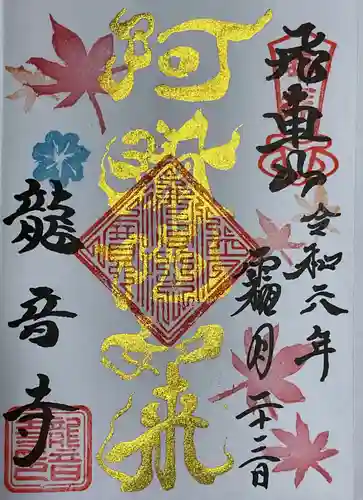 飛車山
令和六年
霜月二十三日
阿彌陀如来
龍音寺
龍音